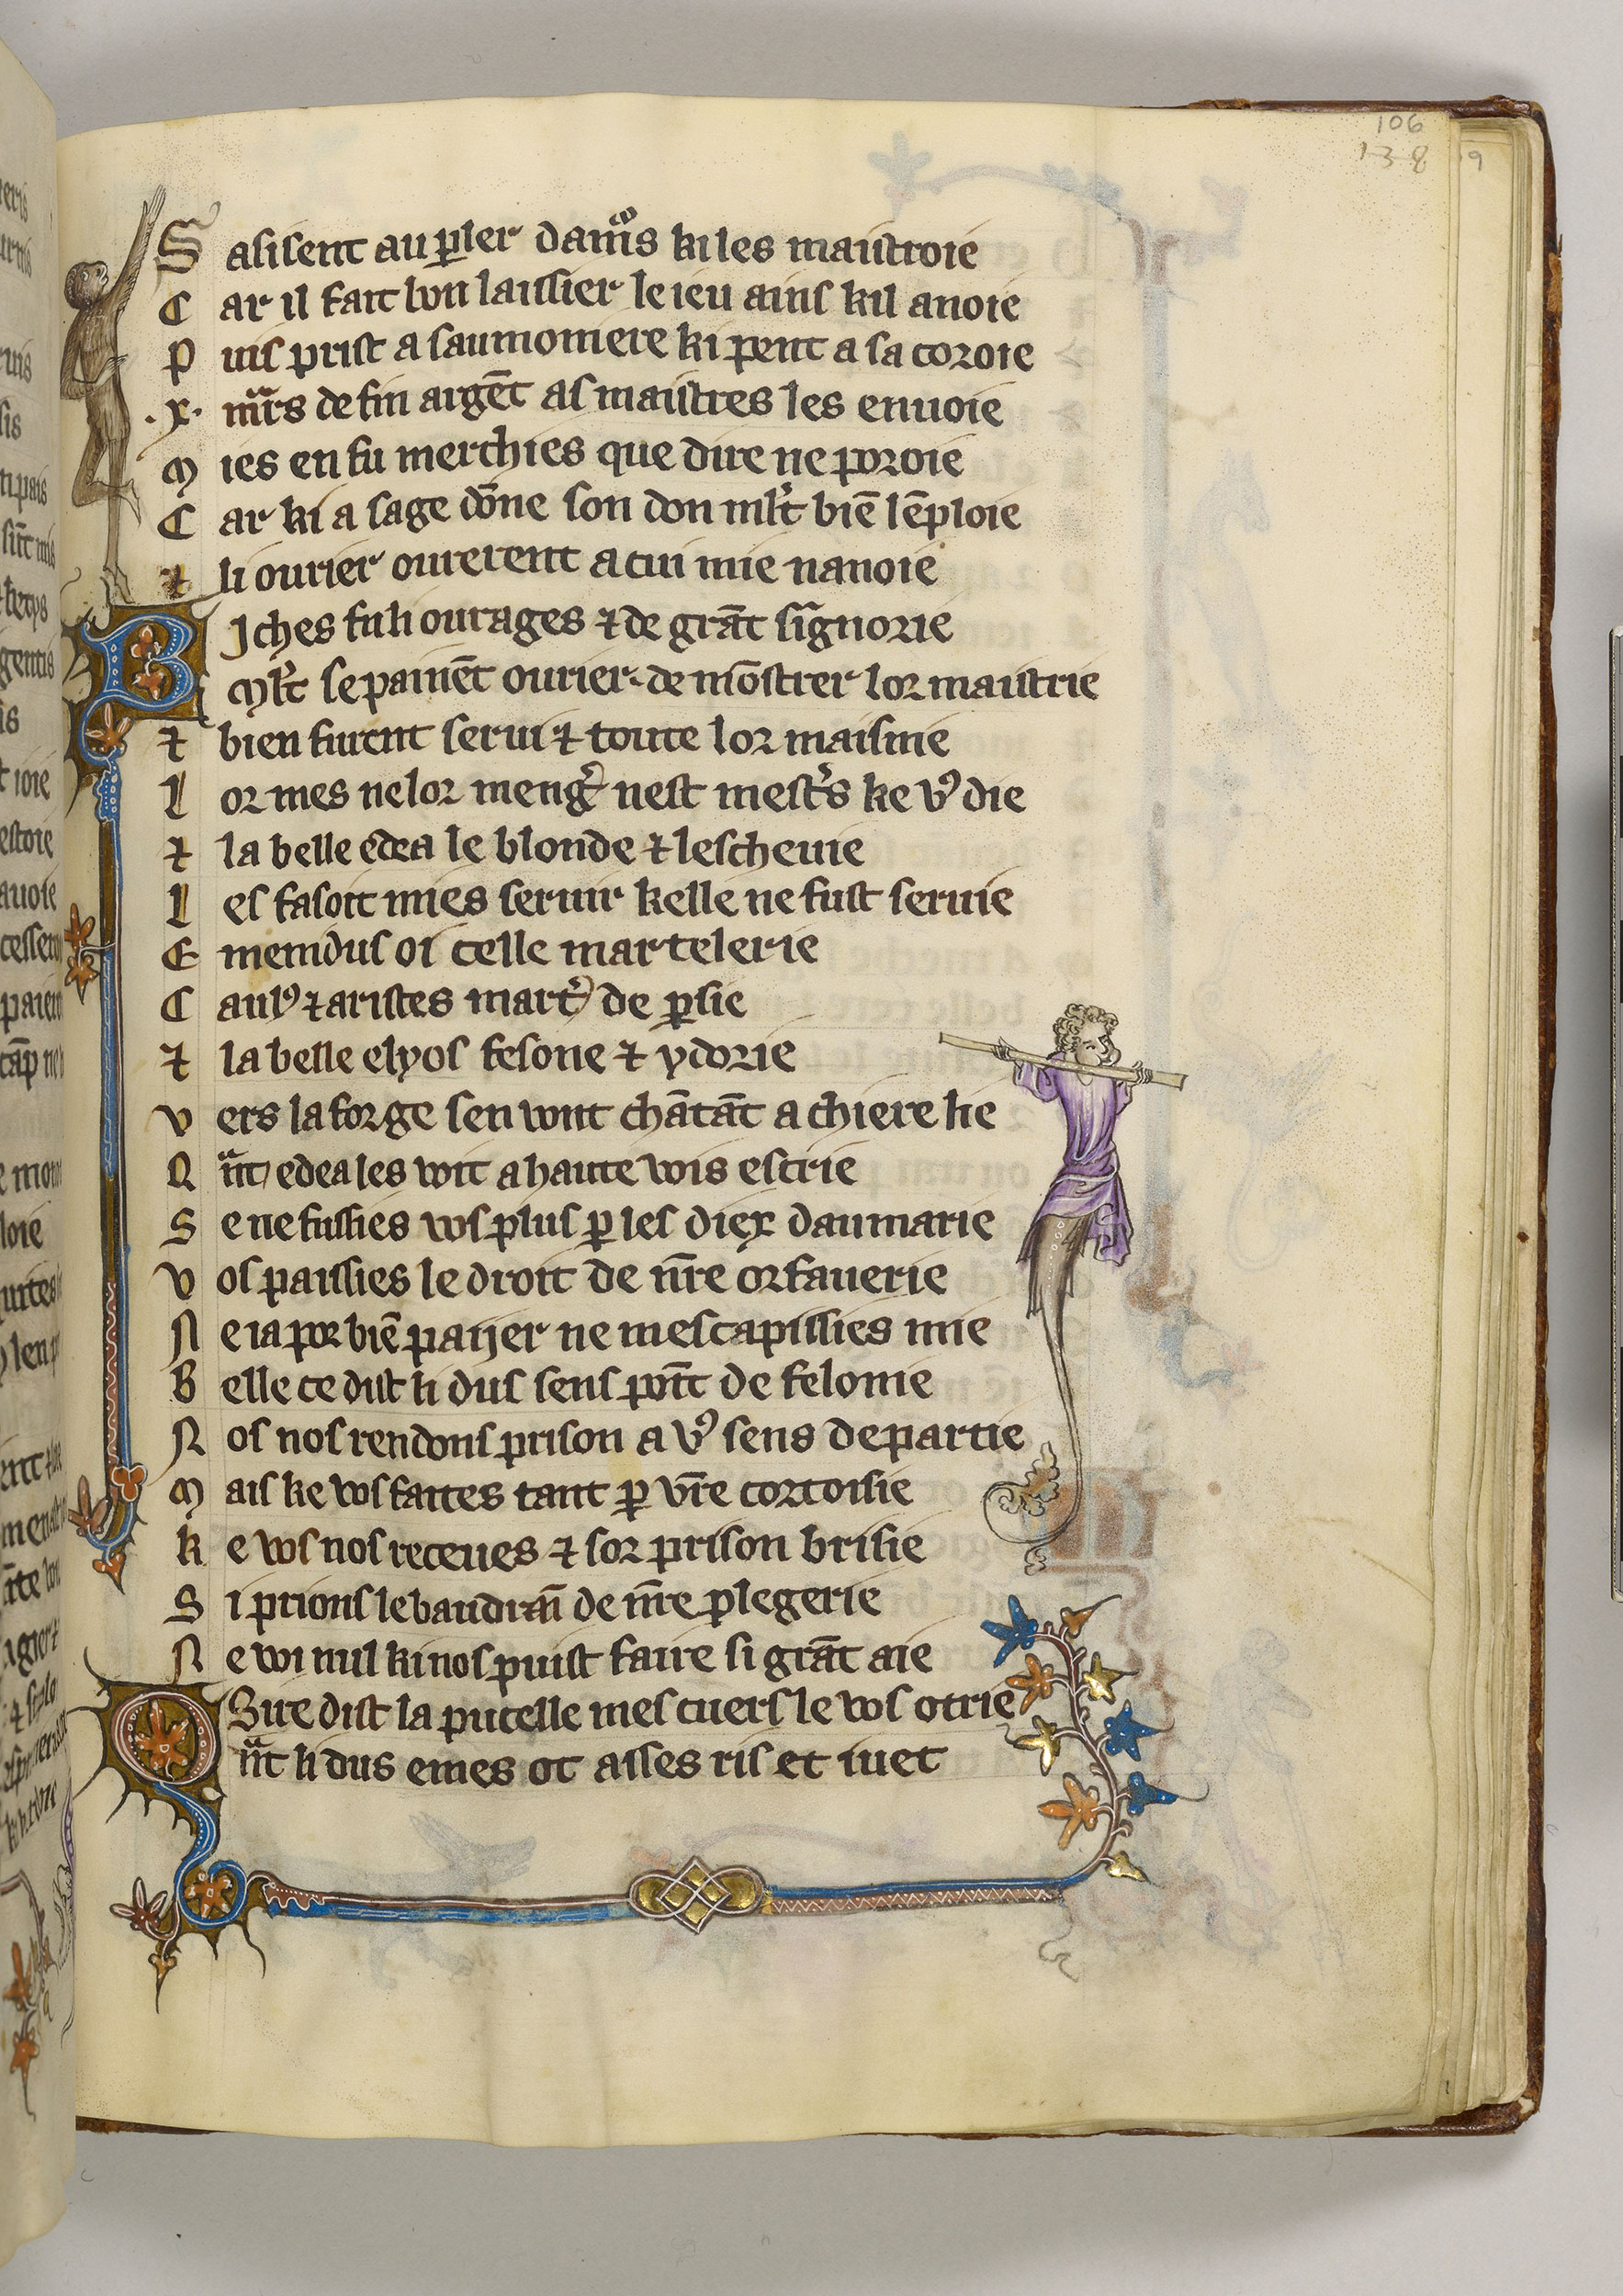 106
138
9
S asisent au ꝑler damͦs ki les maistroie
C ar il fait bon laissier le ieu ains kil anoie
P uis prist a saumoniere ki pent a sa coroie
.x. mᵃrs de fin argēt as maistres les enuoie
M ies en fu merchies que dire ne poroie
C ar ki a sage dōne son don ml̓t biē lēploie
⁊ li ourier ouurerent a cui mie nanoie
R Iches fu li ourages ⁊ de grāt sign̄orie
Ml̓t se painēt ourier de mōstrer lor maistrie
⁊ bien furent serui ⁊ toute lor maisnie
L or mes ne lor meng̓ nest mest̓s ke vꝰ die
⁊ la belle edea le blonde ⁊ lescheuie
L es fasoit mies seruir kelle ne fust seruie
E menidus oi celle martelerie
C aulꝰ ⁊ aristes mart̓ de ꝑsie
⁊ la belle elyos fesone ⁊ ydorie
V ers la forge sen vont chātāt a chiere lie
Q ᵃnt edea les voit a haute vois escrie
S e ne fussies vos plus ꝑ les diex daumarie
V os paissies le droit de nr̄e orfauerie
N e ia por biē paijer ne mescapissies mie
B elle ce dist li dus sens poīt de felonie
N os nos rendons prison a vꝰ sens departie
M ais ke vos faites tant ꝑ vr̄e cortoisie
K e vos nos receues ⁊ sor prison brisie
S i prions le baudraī de nr̄e plegerie
N e voi nul ki nos puist faire si grāt aie
Sire dist la pucelle mes cuers le vos otrie
Q ᵃnt li dus emes ot asses ris et iuet